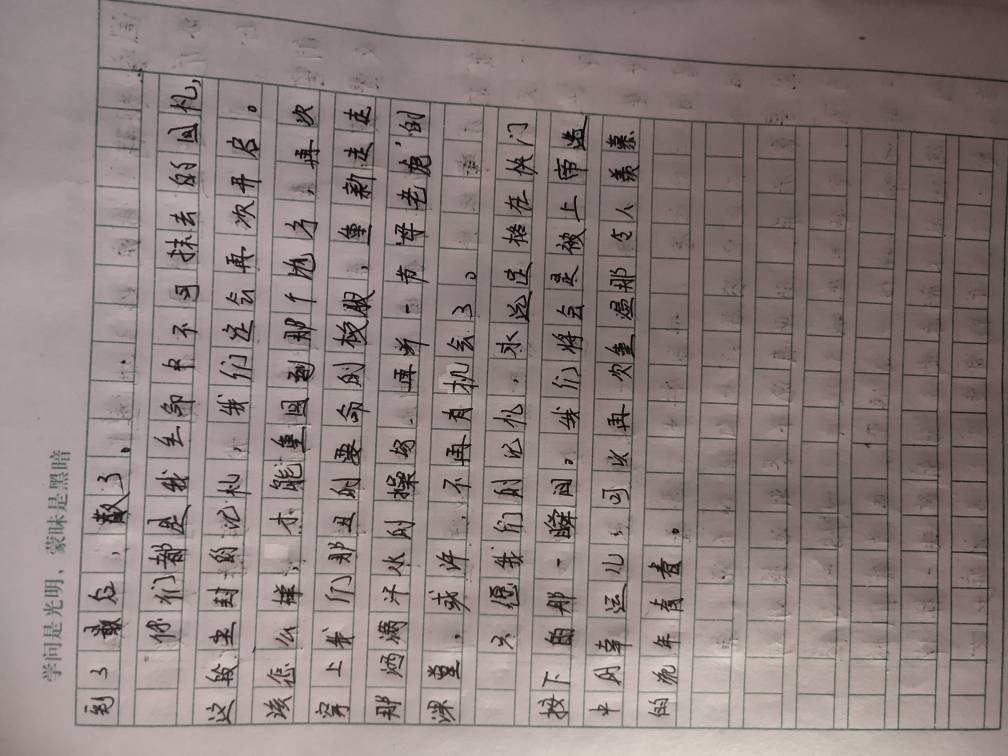 学问是光明，蒙昧是黑暗
到了最后，散了。
你们都是我生命中不可抹去的回忆，
这段尘封的记忆，我们定会再次开启。
该怎么样，才能重回到那个地方，再次
穿上我们那丑的要命的校服，重新走走
那洒满汗水的操场，再听一节母老虎的
课堂，或许，不再有机会了。
只愿我们的记忆，永远定格在快门
按下的那一瞬间。我们将会是被上帝选
中的幸运儿，可以再次重温那令人羡慕
的流年青春。